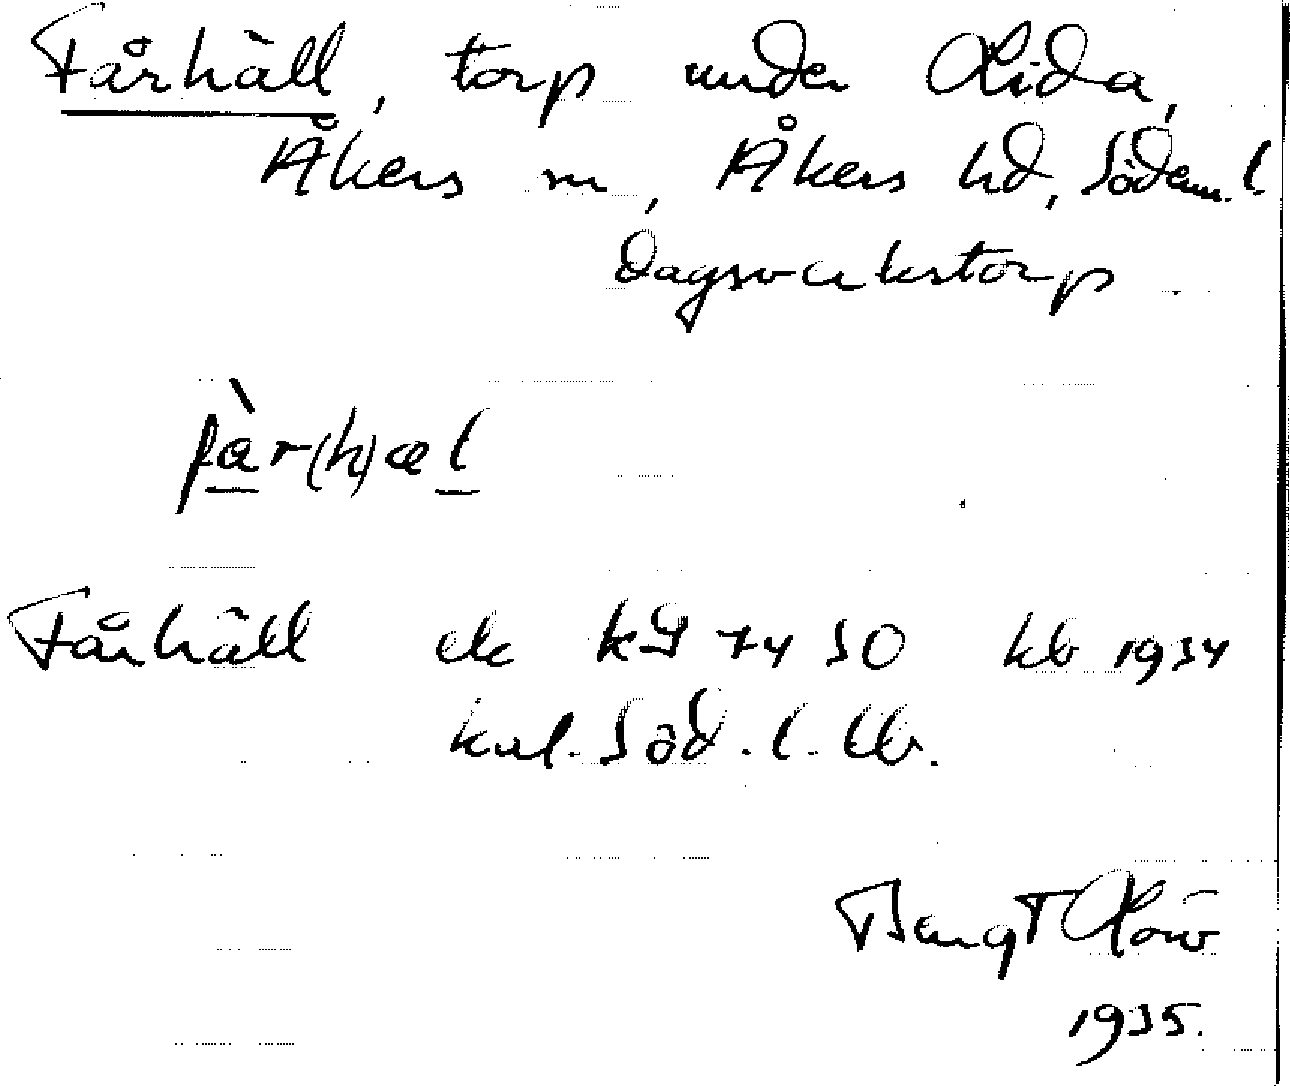 Fårhäll, torp under Lida,
Åkers sn, Åkers hd, Söderm. l
Dagsverkstorp
fàr(h)æl
Fårhäll ek 74 SO kb 1934
kul. Söd. l. kb.
Bengt Löw
1935.